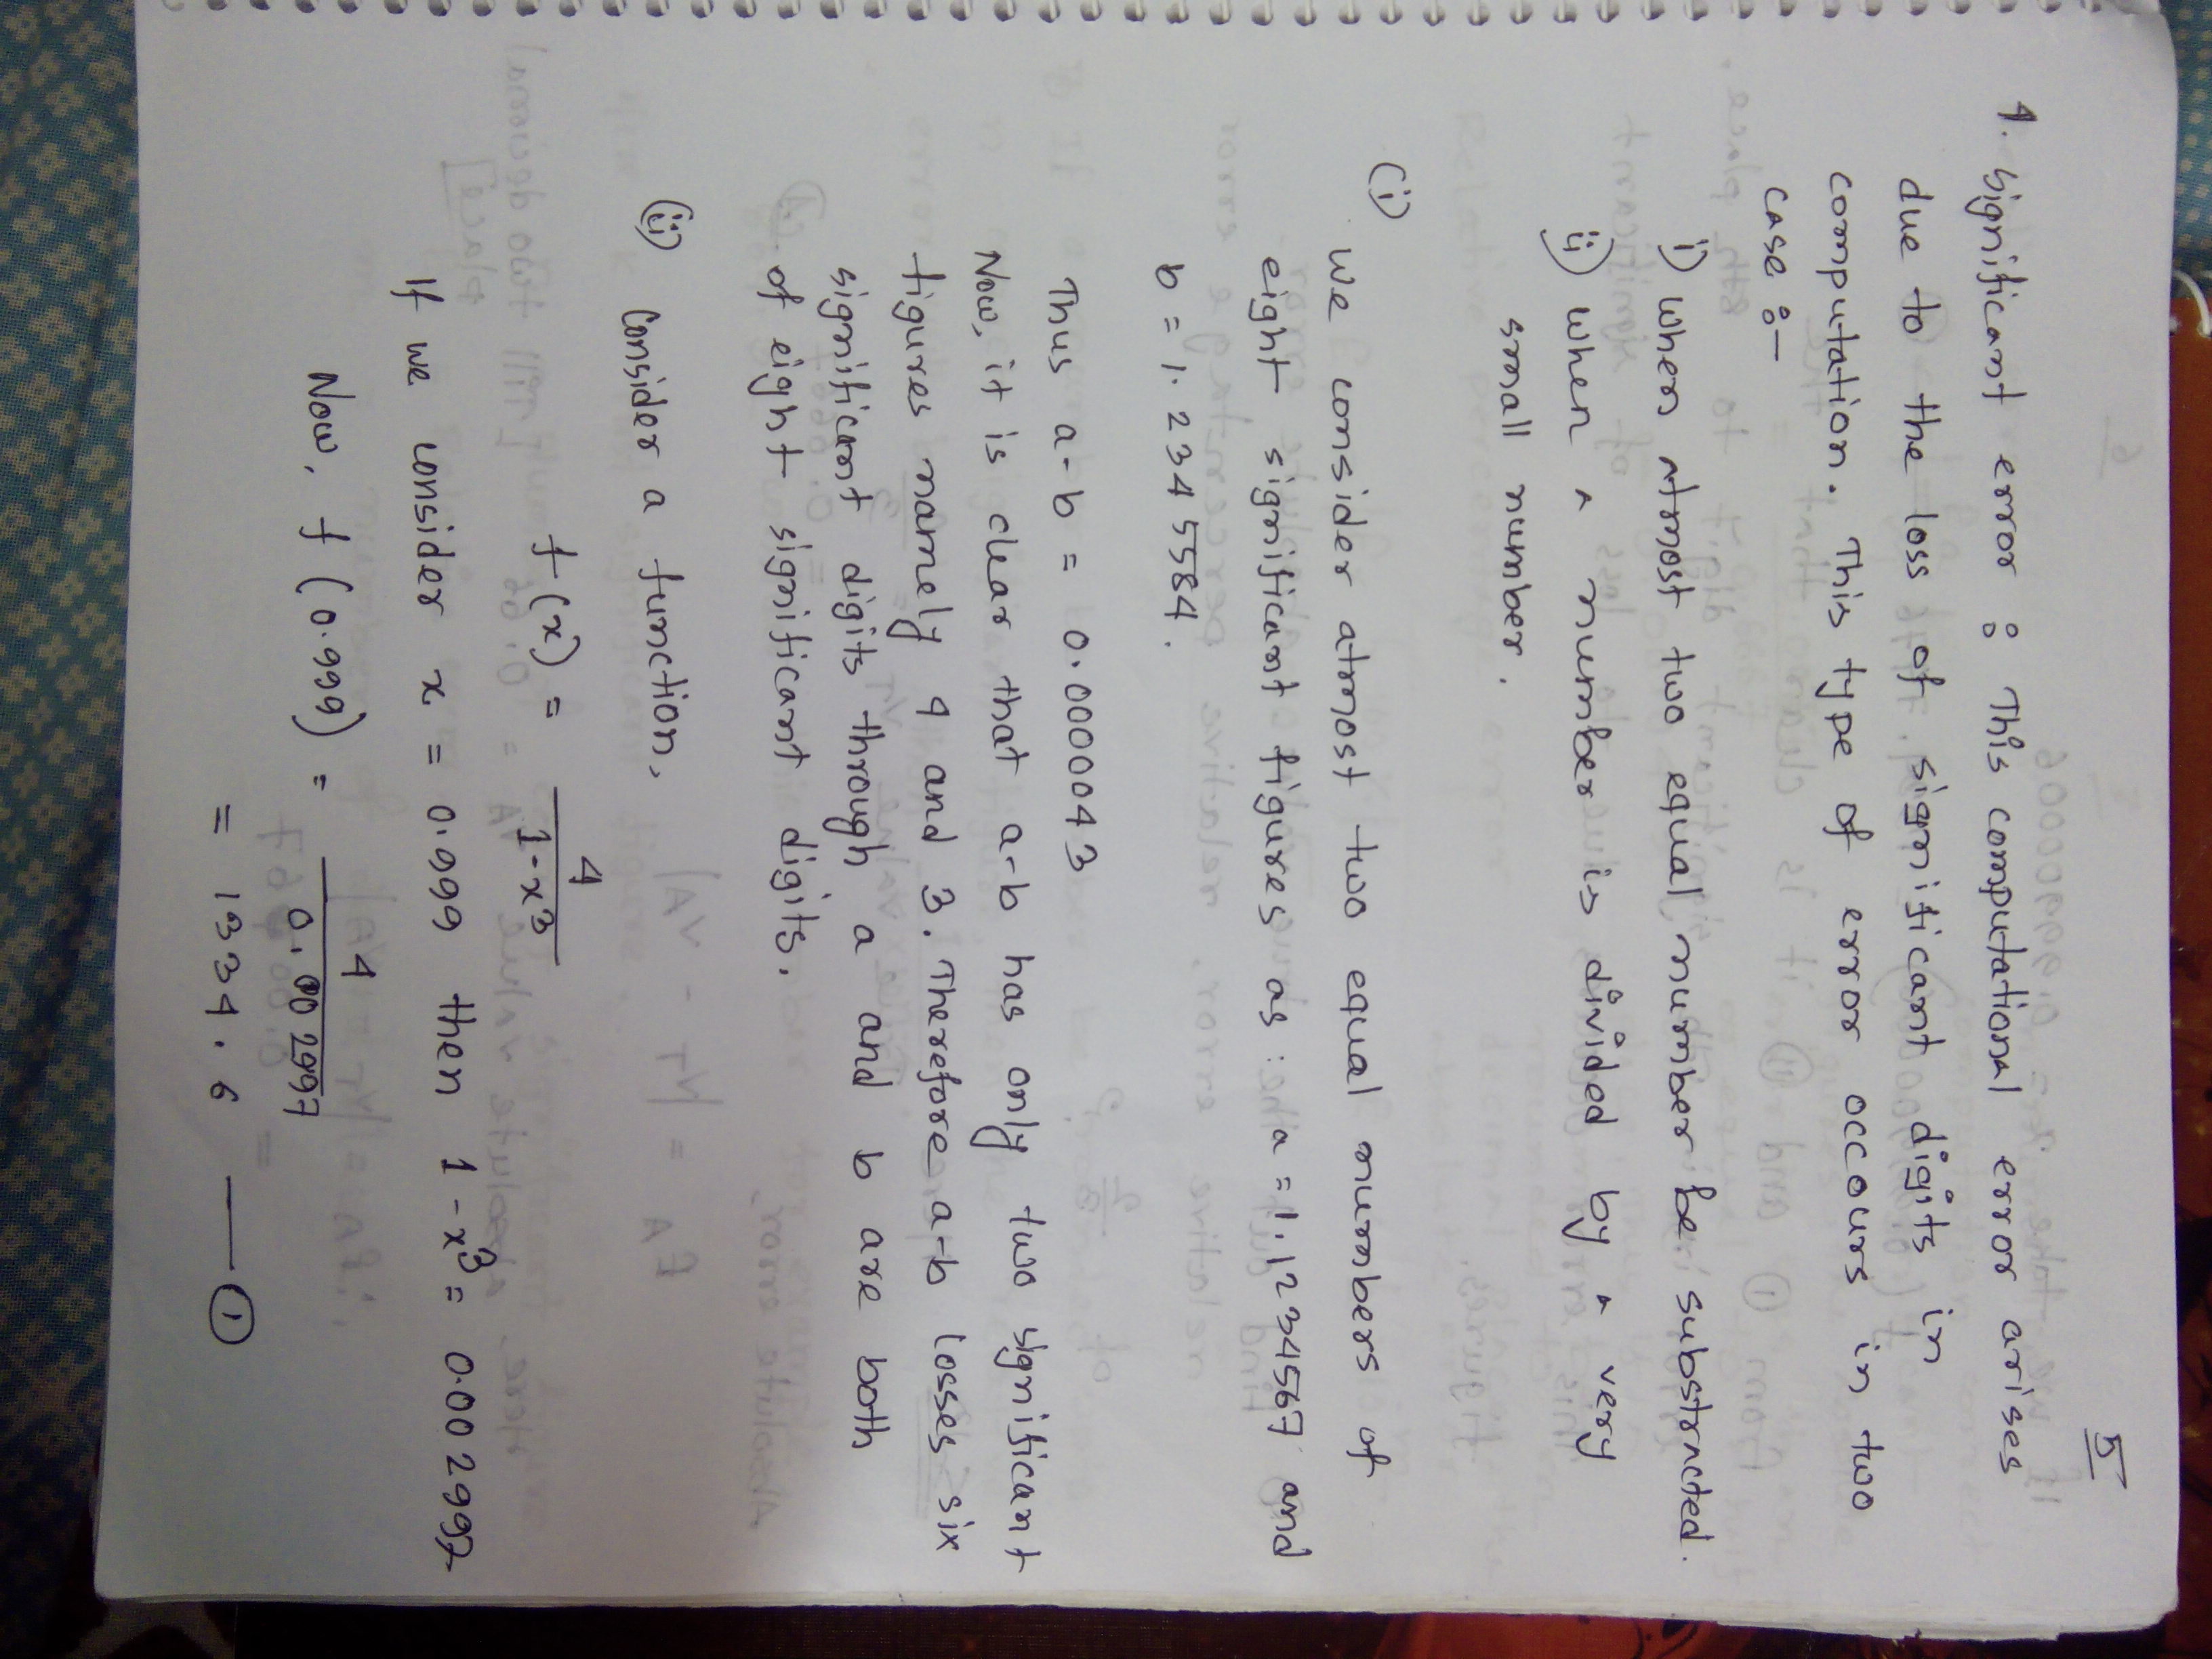 5
4. Significant error : This computational error arises
due to the loss of significant digits in
computation. This type of error occours in two
case :-
i) when atmost two equal number be substracted.
ii) when a number is divided by a very
small number.
(i)
we consider atmost two equal numbers of
eight significant figures as : a = 1.1234567 and
b = 1.2345584.
Thus a-b = 0.0000043
Now, it is clear that a-b has only two significant
figures namely 4 and 3. Therefore a-b losses six
significant digits through a and b are both
of eight significant digits.
(ii) Consider a function,
f(x) = 4 / 1-x³
If we consider x = 0.999 then 1-x³ = 0.002997
Now, f(0.999) = 4 / 0.002997
= 1334.6 — ①